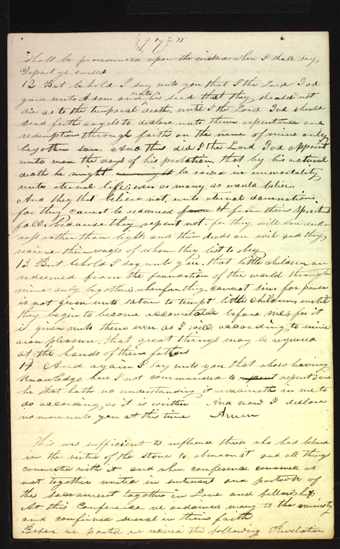 shall be pronounced upon the wicked when I shall say,
Depart ye cursed
12 But behold I say unto you that I the Lord God
gave unto Adam and unto his seed that they should not
die as to the temporal death until I the Lord God should
send forth angels to declare unto them repentance and
redemption through faith on the name of mine only
begotten son. And thus did I the Lord God appoint
unto man the days of his probation that by his natural
death he might be raised in immortality
unto eternal life even as many as would believe
And they that believe not, unto eternal damnation,
for they cannot be redeemed from their spiritual
fall, because they repent not, for they will love dark-
ness rather than light and their deeds are evil and they
receive their wages of whom they list to obey
13 But behold I say unto you, that little children are
redeemed from the foundation of the world through
mine only begotten wherefore they cannot sin for power
is not given unto satan to tempt little children until
they begin to become accountable before me; for it
is given unto them even as I will according to mine
own pleasure, that great things may be required
at the hands of their fathers
14 And again I say unto you that whoso having
knowledge have I not commanded to repent and
he that hath no understanding it remaineth in me to
do according as it is written And now I declare
no more unto you at this time Amen
This was sufficient to influence those who had believed
in the virtue of the stone to
connected with it and when conference convened we
sat together united in sentiment and partook of
the sacrament together in Love and fellowship
At this Conference we ordained many to the ministry
and confirmed several in their faith
Before we parted we received the following Revelation